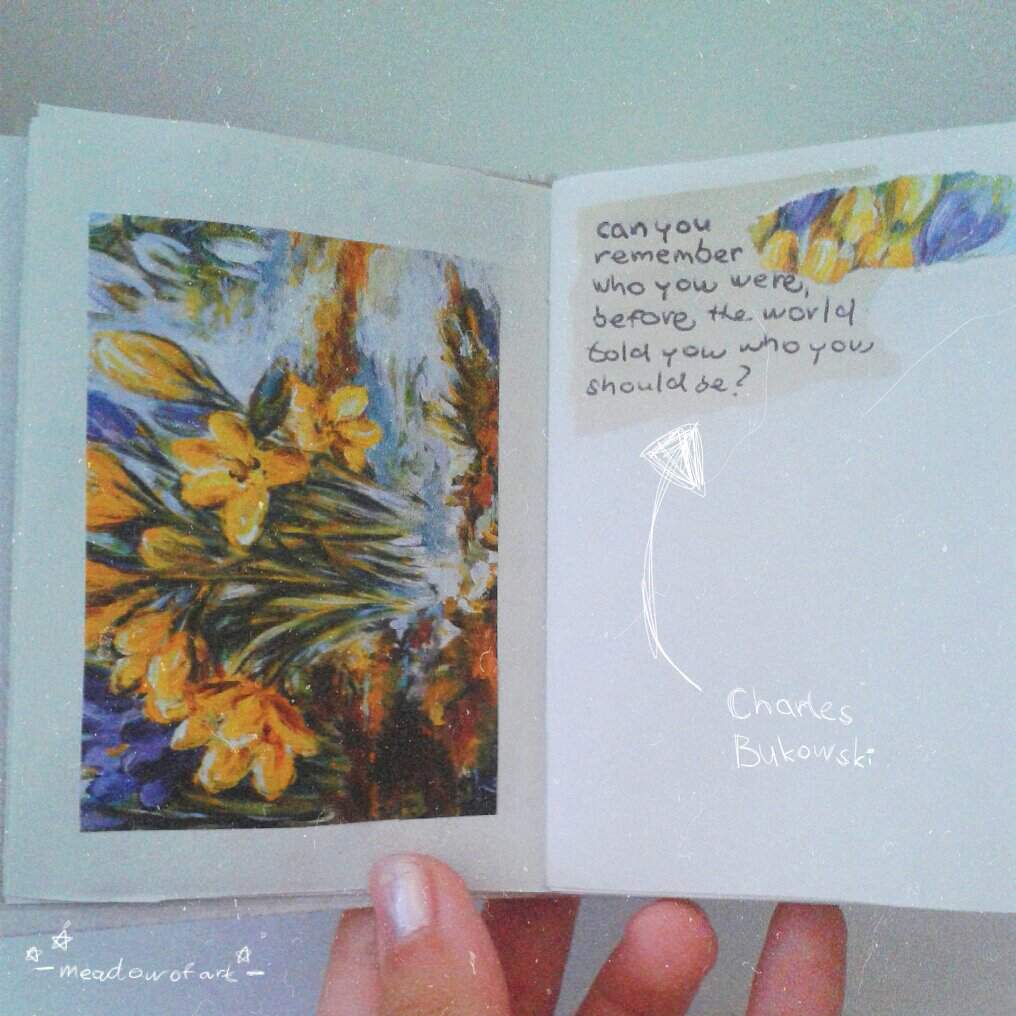 can you
remember
who you were,
before the world
told you who you
should be?
Charles
Bukowski
-meadowofart-